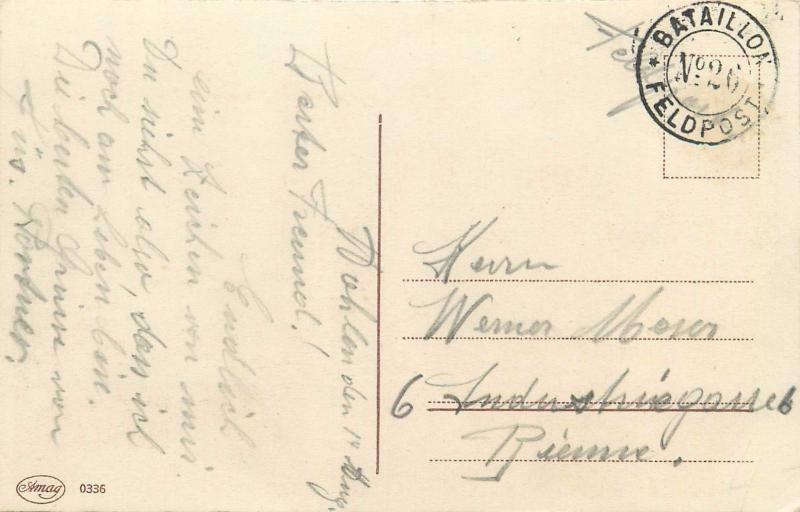 Wohlen den 1. Aug.
Werter Freund!
Endlich
ein Zeichen von mir.
Du siehst also, dass ich
noch am Leben bin.
Die besten Grüsse von
BATAILLON
No 26
FELDPOST
Herrn
Werner Moser
6 Industriegasse 6
Bienne.
Amag 0336